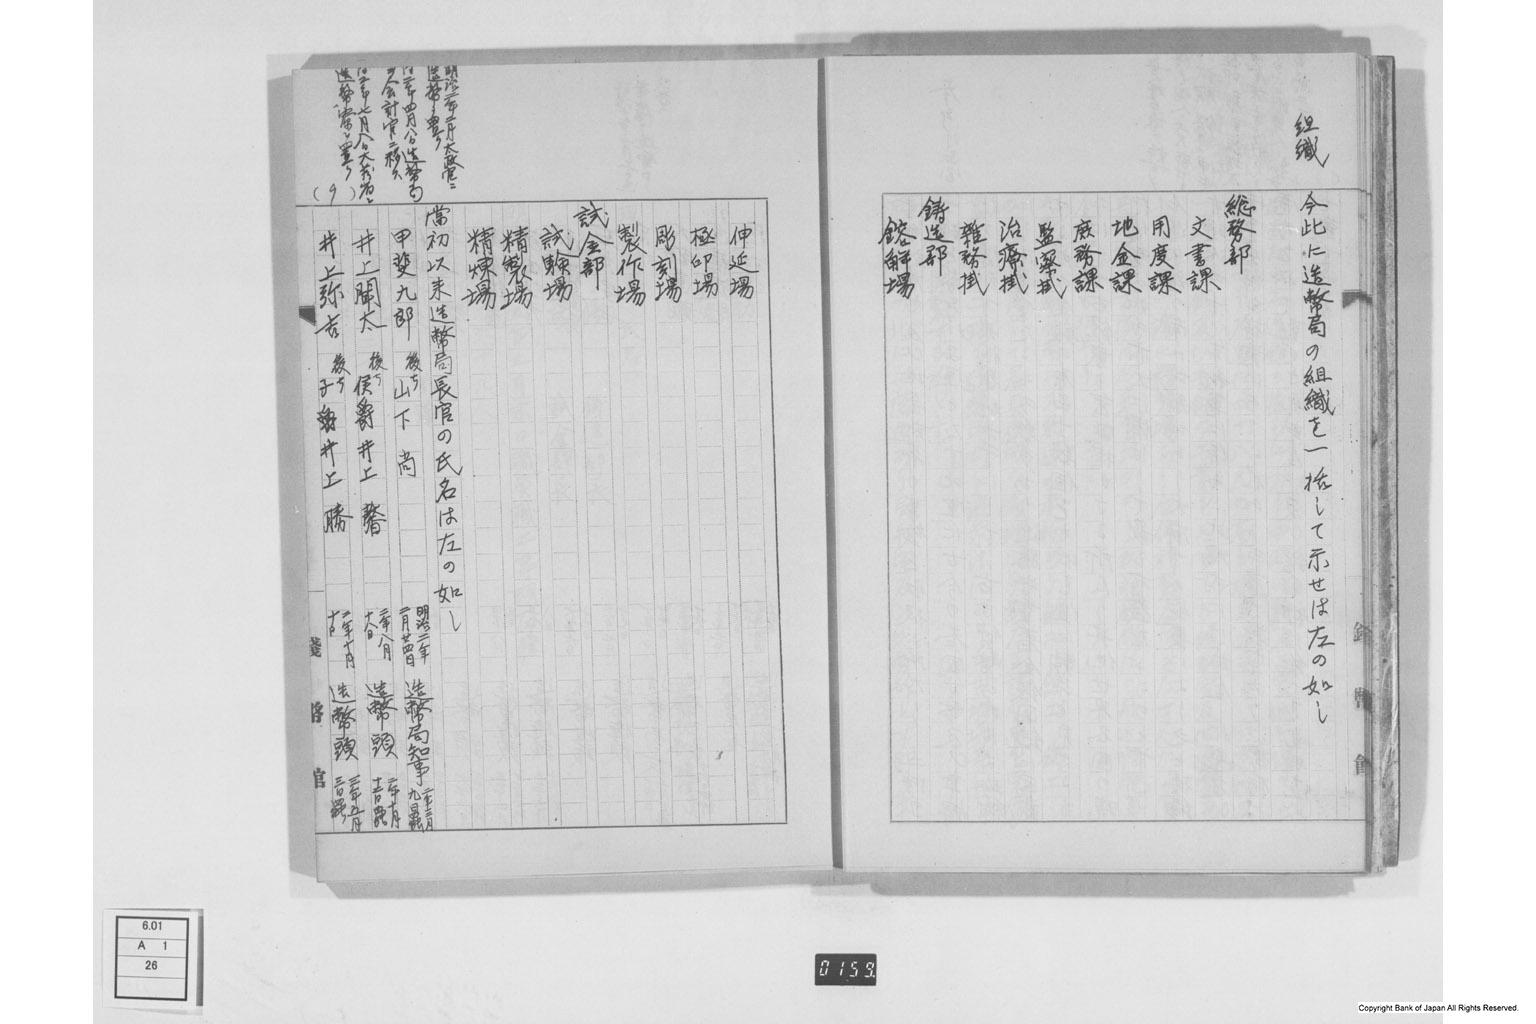 組織
今此に造幣局の組織を一括して示せは左の如し
総務部
文書課
用度課
地金課
庶務課
監察掛
治療掛
雑務掛
鋳造部
鎔解場
伸延場
極印場
彫刻場
製作場
試金部
試験場
精製場
精煉場
當初以来造幣局長官の氏名は左の如し
甲斐九郎 後ち 山下 尚 明治二年二月廿四日 造幣局知事
井上聞太 後ち 侯爵井上 馨 二年八月十八日 造幣頭
井上弥吉 後ち 子爵井上 勝 二年十月十日 造幣頭
(9)
6.01
A 1
26
0159
Copyright Bank of Japan All Rights Reserved.